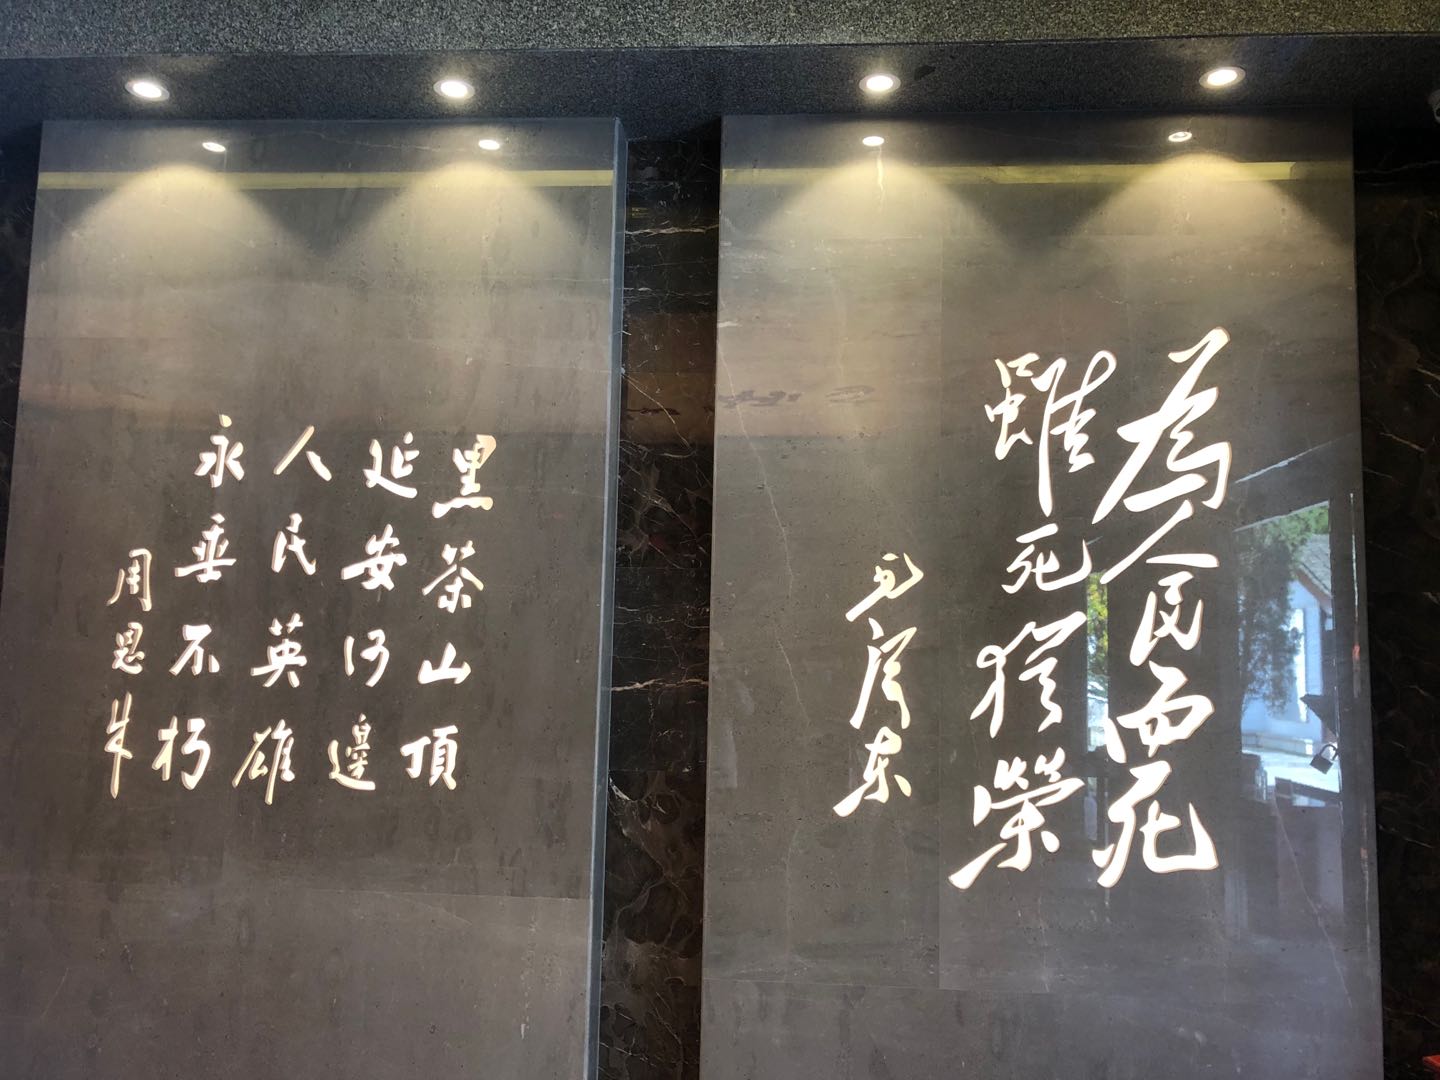 為人民而死
雖死猶榮
毛澤东
黑茶山頂
延安河邊
人民英雄
永垂不朽
周恩来